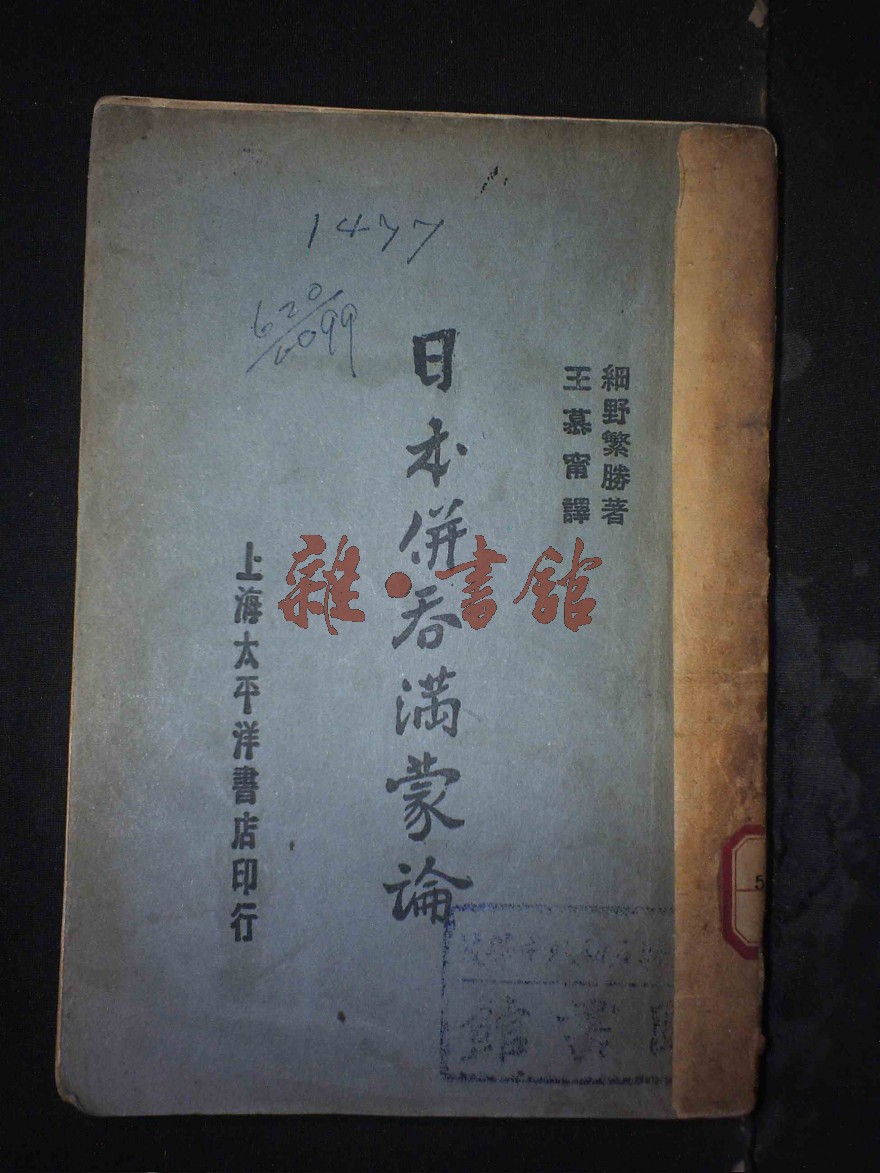 1477
620/
細野繁勝著
王慕甯譯
日本併吞満蒙論
上海太平洋書店印行
雜·書舘
5
館